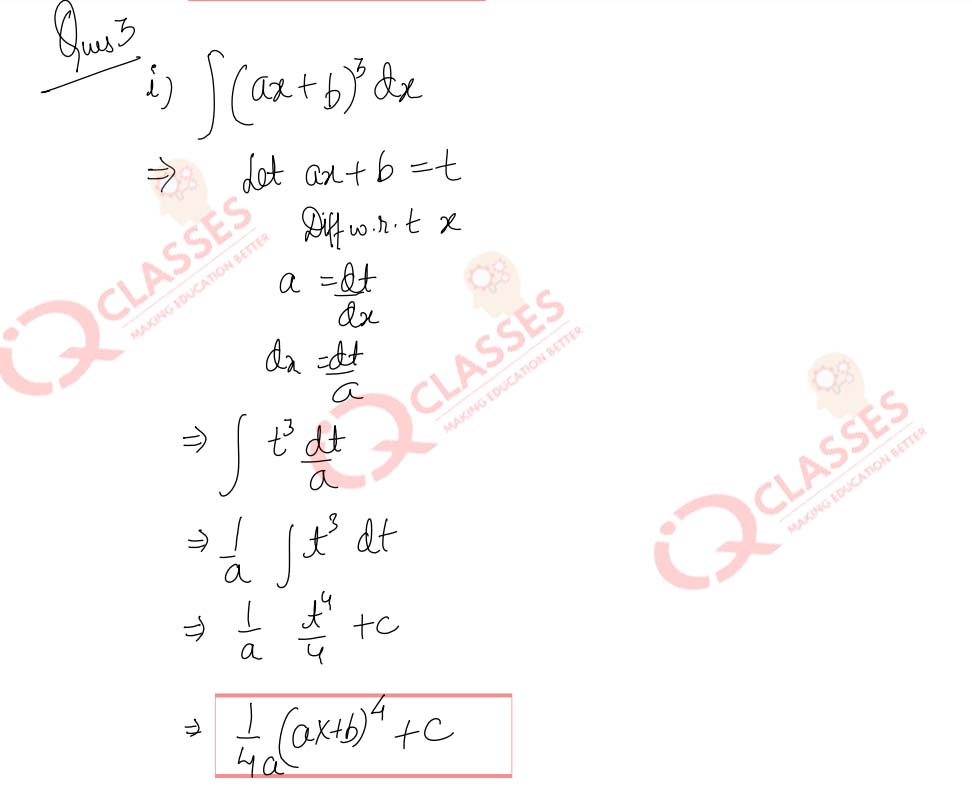 Ques 3
i) ∫(ax+b)³ dx
⇒ Let ax+b = t
Diff w.r.t x
a = dt/dx
dx = dt/a
⇒ ∫ t³ dt/a
⇒ 1/a ∫ t³ dt
⇒ 1/a t⁴/4 + c
⇒ 1/4a (ax+b)⁴ + c
iQ CLASSES
MAKING EDUCATION BETTER
iQ CLASSES
MAKING EDUCATION BETTER
iQ CLASSES
MAKING EDUCATION BETTER